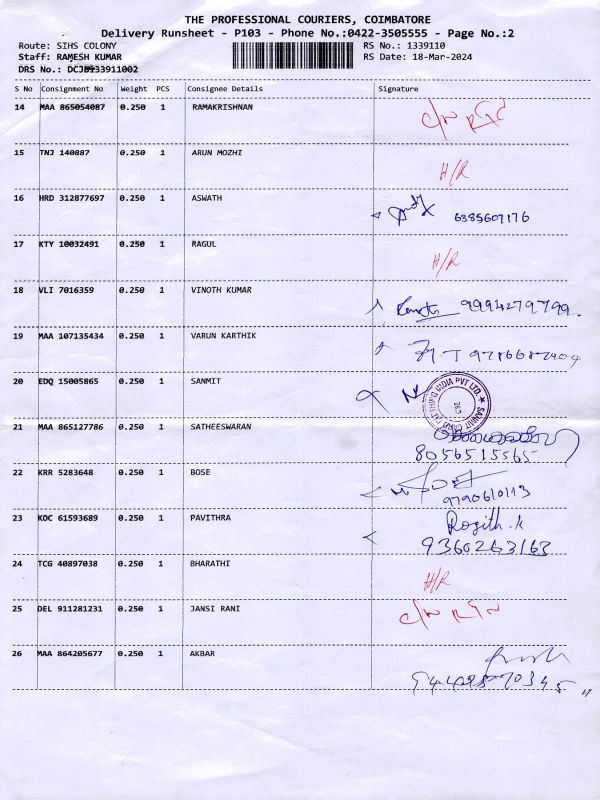 THE PROFESSIONAL COURIERS, COIMBATORE
Delivery Runsheet - P103 - Phone No.:0422-3505555 - Page No.:2
Route: SIHS COLONY RS No.: 1339110
Staff: RAMESH KUMAR RS Date: 18-Mar-2024
DRS No.:
S No Consignment No Weight PCS Consignee Details Signature
14 MAA 865054087 0.250 1 RAMAKRISHNAN
15 TNJ 140887 0.250 1 ARUN MOZHI H/R
16 HRD 312877697 0.250 1 ASWATH 6385607176
17 KTY 10032491 0.250 1 RAGUL H/R
18 VLI 7016359 0.250 1 VINOTH KUMAR 9994279799.
19 MAA 107135434 0.250 1 VARUN KARTHIK
20 EDQ 15005865 0.250 1 SANMIT
21 MAA 865127786 0.250 1 SATHEESWARAN
8056515565
22 KRR 5283648 0.250 1 BOSE
9790610113
23 KOC 61593689 0.250 1 PAVITHRA Rogith.k
9360263163
24 TCG 40897038 0.250 1 BHARATHI H/R
25 DEL 911281231 0.250 1 JANSI RANI
26 MAA 864205677 0.250 1 AKBAR